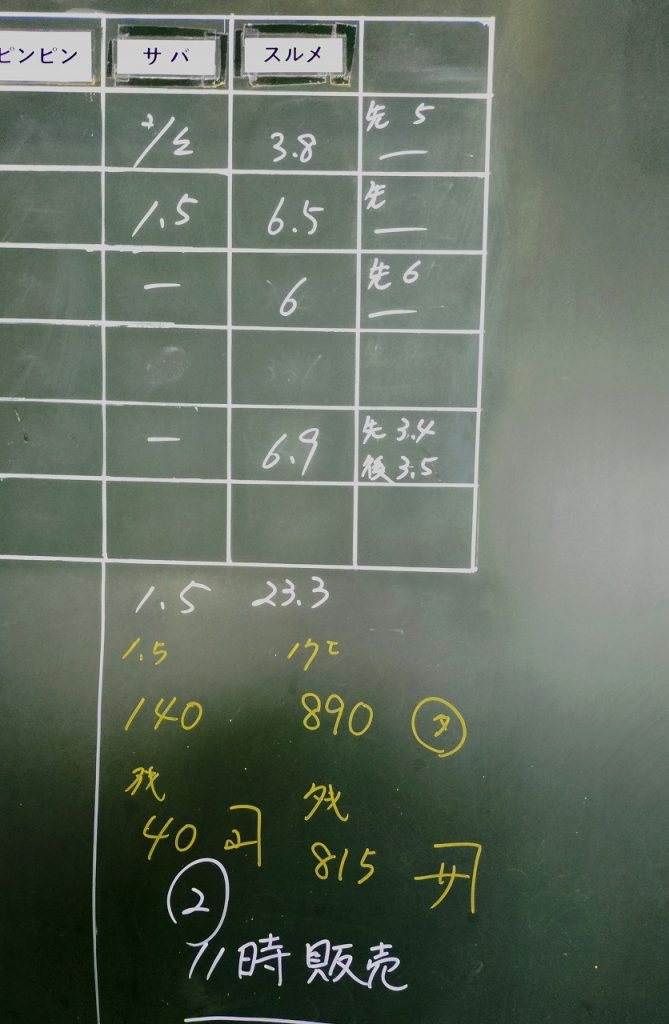 ピンピン サバ スルメ
3.8 先 5
1.5 6.5 先 —
— 6 先 6
—
— 6.9 先 3.4
後 3.5
1.5 23.3
1.5
140 890
残 残
40 815 サ
②
11時販売